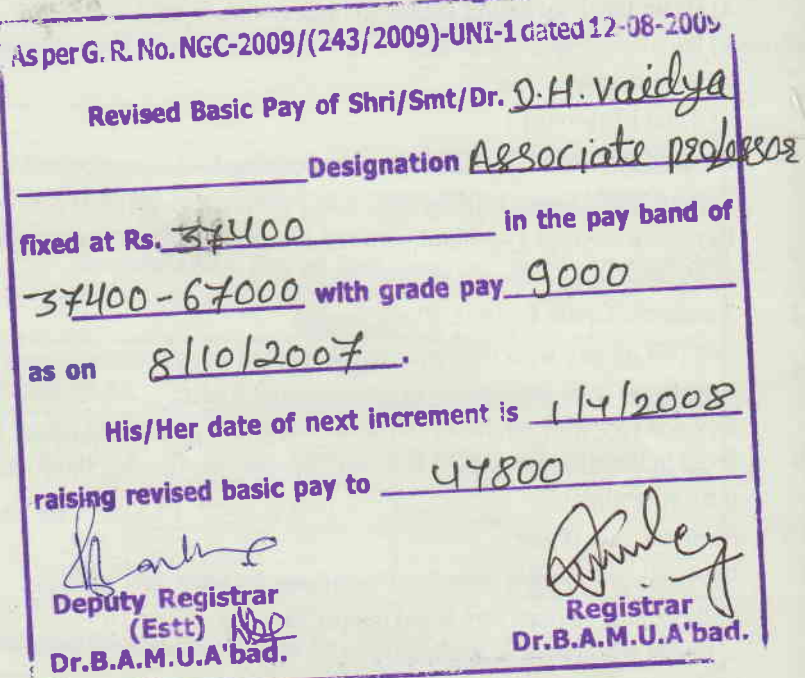 As per G. R. No. NGC-2009/(243/2009)-UNI-1 dated 12-08-2009
Revised Basic Pay of Shri/Smt/Dr. D.H. Vaidya
Designation Associate professor
fixed at Rs. 37400 in the pay band of
37400-67000 with grade pay 9000
as on 8/10/2007.
His/Her date of next increment is 1/4/2008
raising revised basic pay to 47800
Deputy Registrar
(Estt)
Dr.B.A.M.U.A'bad.
Registrar
Dr.B.A.M.U.A'bad.